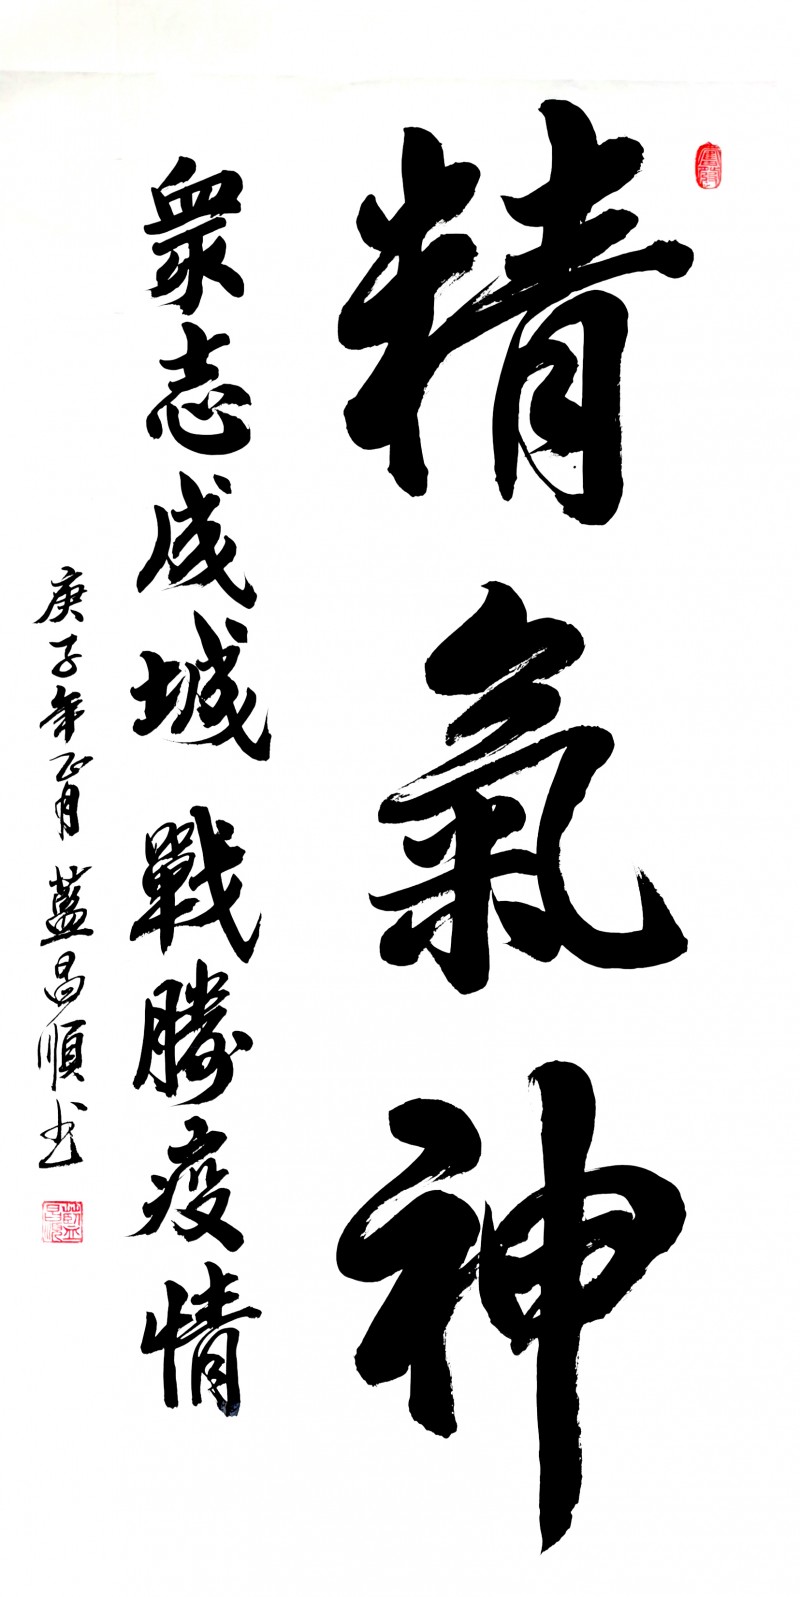 精氣神
眾志成城 戰勝疫情
庚子年正月 藍昌順书